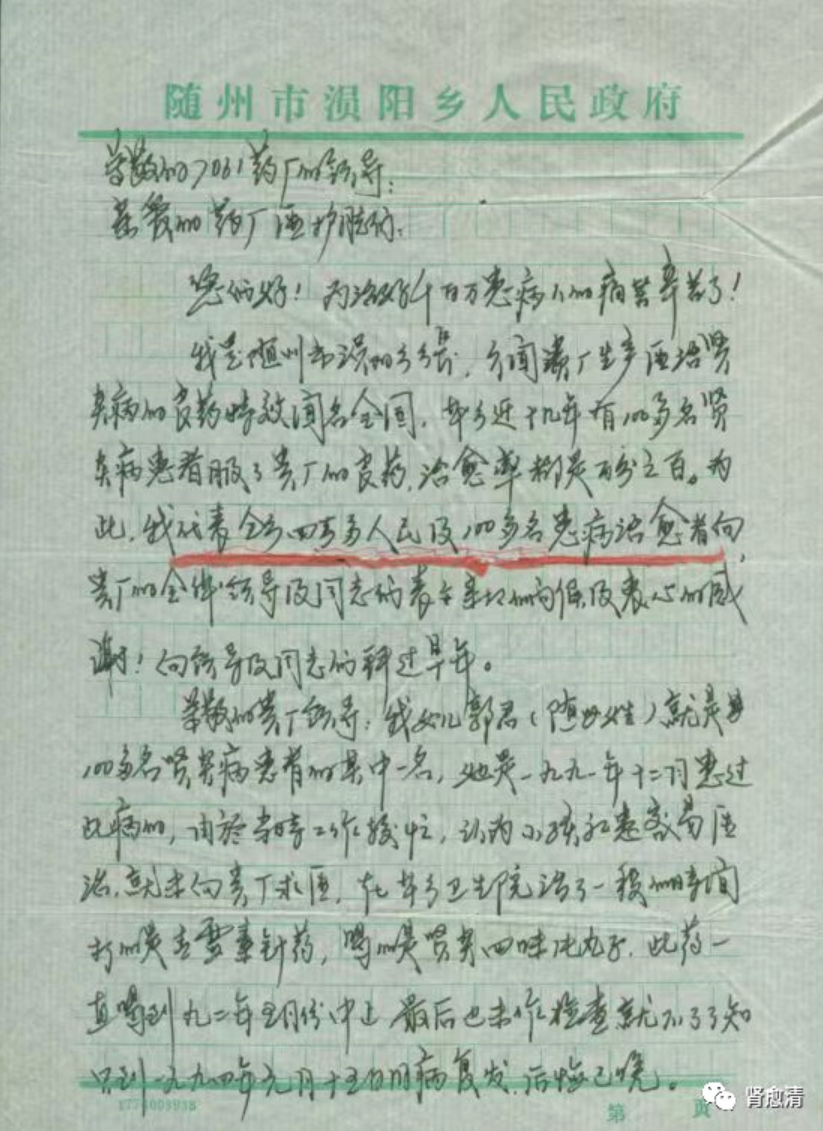 随州市涢阳乡人民政府
尊敬的7061药厂的领导：
药厂医护
您们好！为治好千百万患病人的病苦辛苦了！
我是随州市涢阳乡乡长，闻贵厂生产医治肾
炎病的良药特效闻名全国，本乡近十几年有100多名肾
炎病患者服了贵厂的良药，治愈率都是百分之百。为
此，我代表全乡四万多人民及100多名患病治愈者向
贵厂的全体领导及同志们表示亲切的问候及衷心的感
谢！向领导及同志们拜过早年。
尊敬的贵厂领导：我女儿郭君（随母姓）就是
100多名肾炎病患者的其中一名，她是一九九一年十二月患过
此病的，由於当时工作较忙，认为小孩初患容易医
治，就未向贵厂求医，在本乡卫生院治了一段的时间
打的是青霉素针药，喝的是肾炎四味片丸子，此药一
直喝到九二年五月份中止，最后也未作检查就不了了知
只到一九九四年元月十五日旧病复发，后悔已晚。
1774003938
第 页
肾愈清